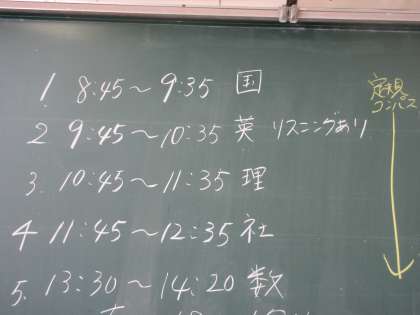 1 8:45～9:35 国
2 9:45～10:35 英 リスニングあり
3. 10:45～11:35 理
4 11:45～12:35 社
5. 13:30～14:20 数
定規
コンパス